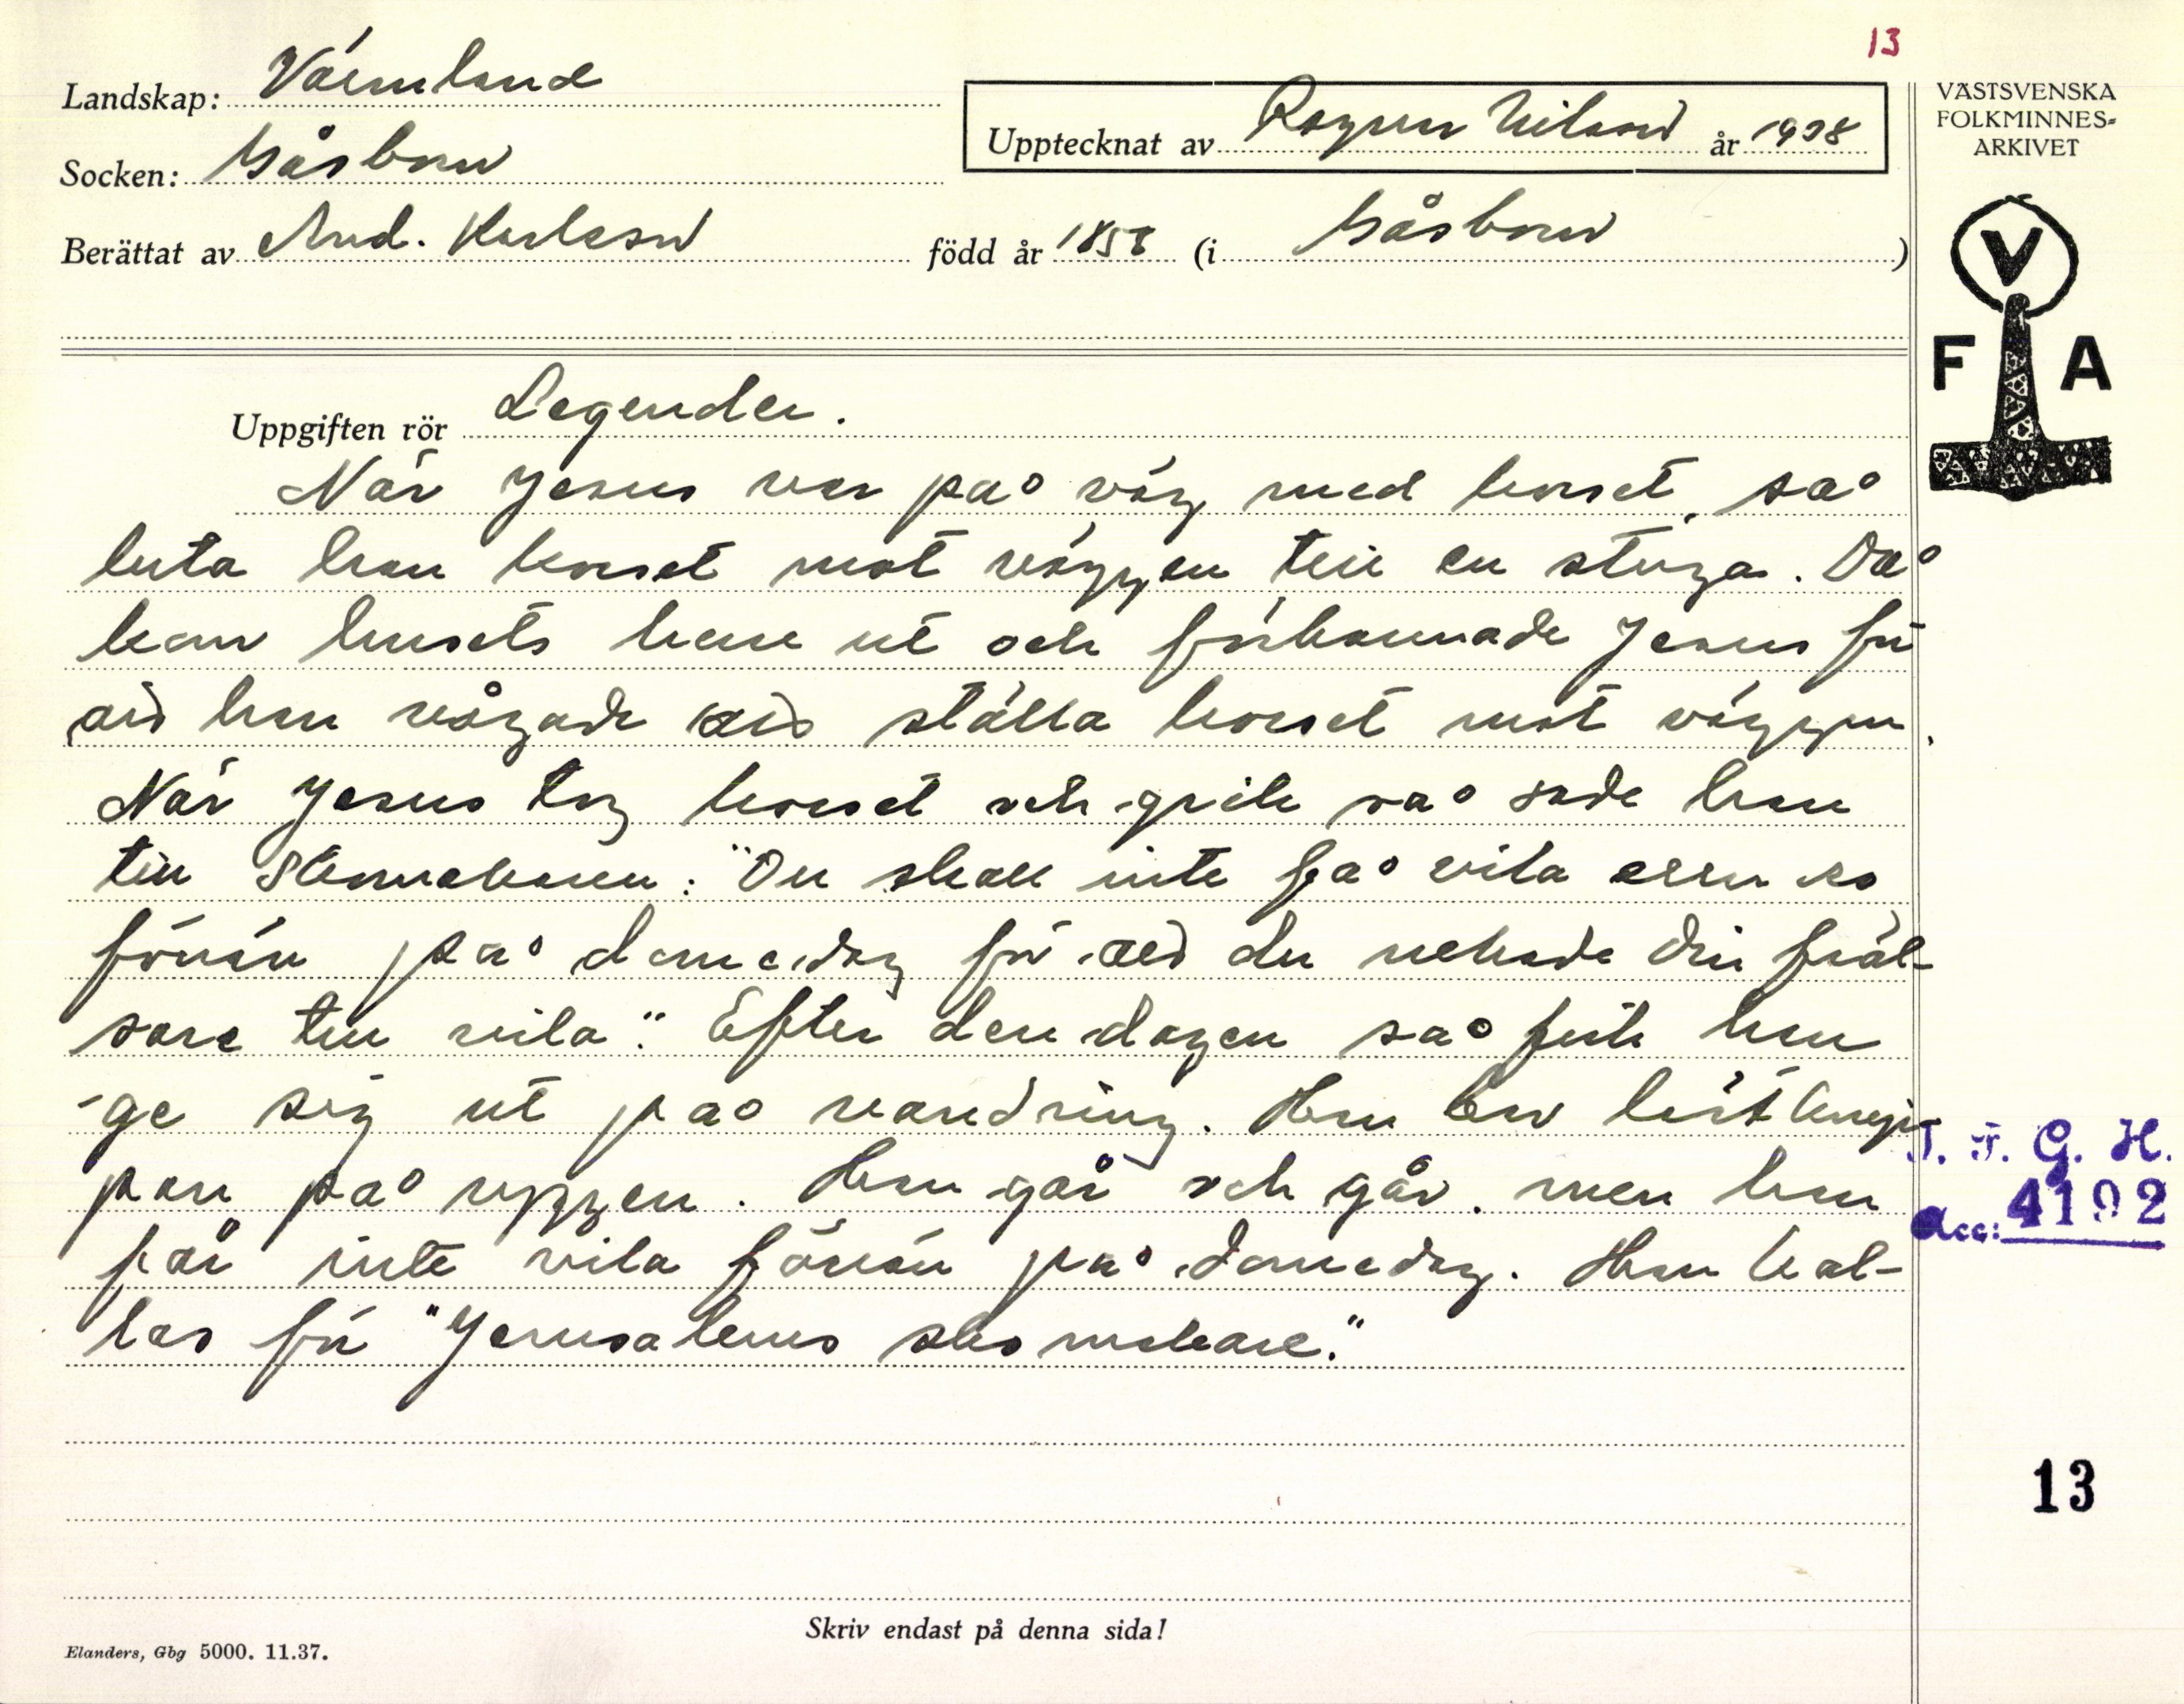 13
Landskap: Värmland
Socken: Gåsborn
Berättat av And. Karlsson
Upptecknat av Ragnar Nilsson år 1938
född år 1858 (i Gåsborn)
VÄSTSVENSKA
FOLKMINNES-
ARKIVET
V
F A
Uppgiften rör Legender.
När Jesus var på väg med korset, så
luta han korset mot väggen till en stuga. Då
kom husets herre ut och förbannade Jesus för
att han vågade att ställa korset mot väggen.
När Jesus tog korset och gick så sade han
till Skomakaren: "Du skall inte få vila
förrän på domedag för att du nekade din fräl-
sare till vila." Efter den dagen så fick han
ge sig ut på vandring. Han bär
på ryggen. Han går och går, men han
får inte vila förrän på domedag. Han kal-
las för "Jerusalems skomakare."
I. F. G. H.
Acc: 4192
13
Skriv endast på denna sida!
Elanders, Gbg 5000. 11.37.